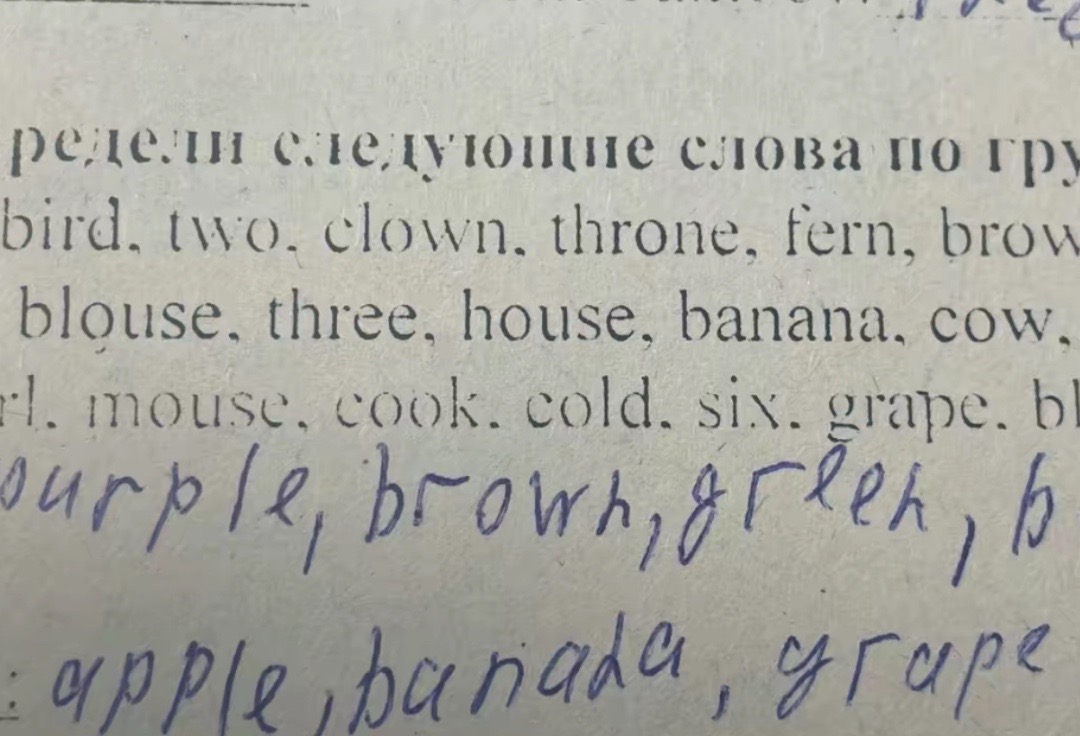 редели следующие слова по гру
bird, two, clown, throne, fern, brow
blouse, three, house, banana, cow,
rl, mouse, cook, cold, six, grape, bl
purple, brown, green, b
: apple, banana, grape